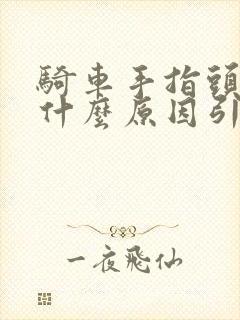 騎車手指頭
什麼原因引
一夜飛仙